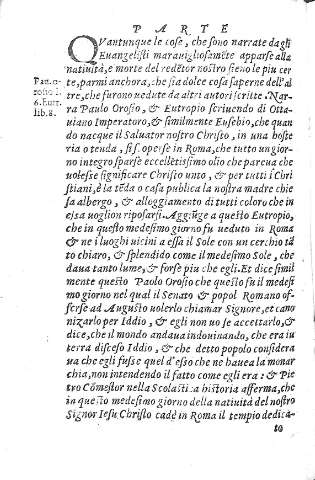 PARTE
QVantunque le cose, che sono narrate dagli
Euangelisti marauigliosamẽte apparse alla
natiuità, e morte del redẽtor nostro sieno le piu cer
te, parmi anchora, che sia dolce cosa saperne dell'al
tre, che furono uedute da altri autori scritte. Nar-
ra Paulo Orosio, & Eutropio scriuendo di Otta-
uiano Imperatore, & similmente Eusebio, che quan
do nacque il Saluator nostro Christo, in una hoste
ria o tenda, si s'operse in Roma, che tutto un gior-
no integro sparse eccellẽtissimo olio che parea che
uolesse significare Christo unto, & per tutti i Chri
stiani, è la tẽda o casa publica la nostra madre chie
sa albergo, & alloggiamento di tutti coloro che in
essa uoglion riposarsi. Aggiũge a questo Eutropio,
che in questo medesimo giorno fu ueduto in Roma
& ne i luoghi uicini a essa il Sole con un cerchio tã
to chiaro, & splendido come il medesimo Sole, che
daua tanto lume, & forse piu che egli. Et dice simil
mente questo Paulo Orosio che questo fu il medesi
mo giorno nel qual il Senato & popol Romano of-
ferse ad Augusto uolerlo chiamar Signore, et cano
nizarlo per Iddio, & egli non uo le accettarlo, &
dice, che il mondo andaua indouinando, che era in
terra disceso Iddio, & che detto popolo considera
ua che egli fusse quel d'esso che ne haueа la monar
chia, non intendendo il fatto come egli era: & Pie
tro Cõmestor nella Scolastica historia afferma, che
in questo medesimo giorno della natiuità del nostro
Signor Iesu Christo cadè in Roma il tempio dedica-
to
Pau. o-
rosio l.
6. Eutr.
lib. 8.